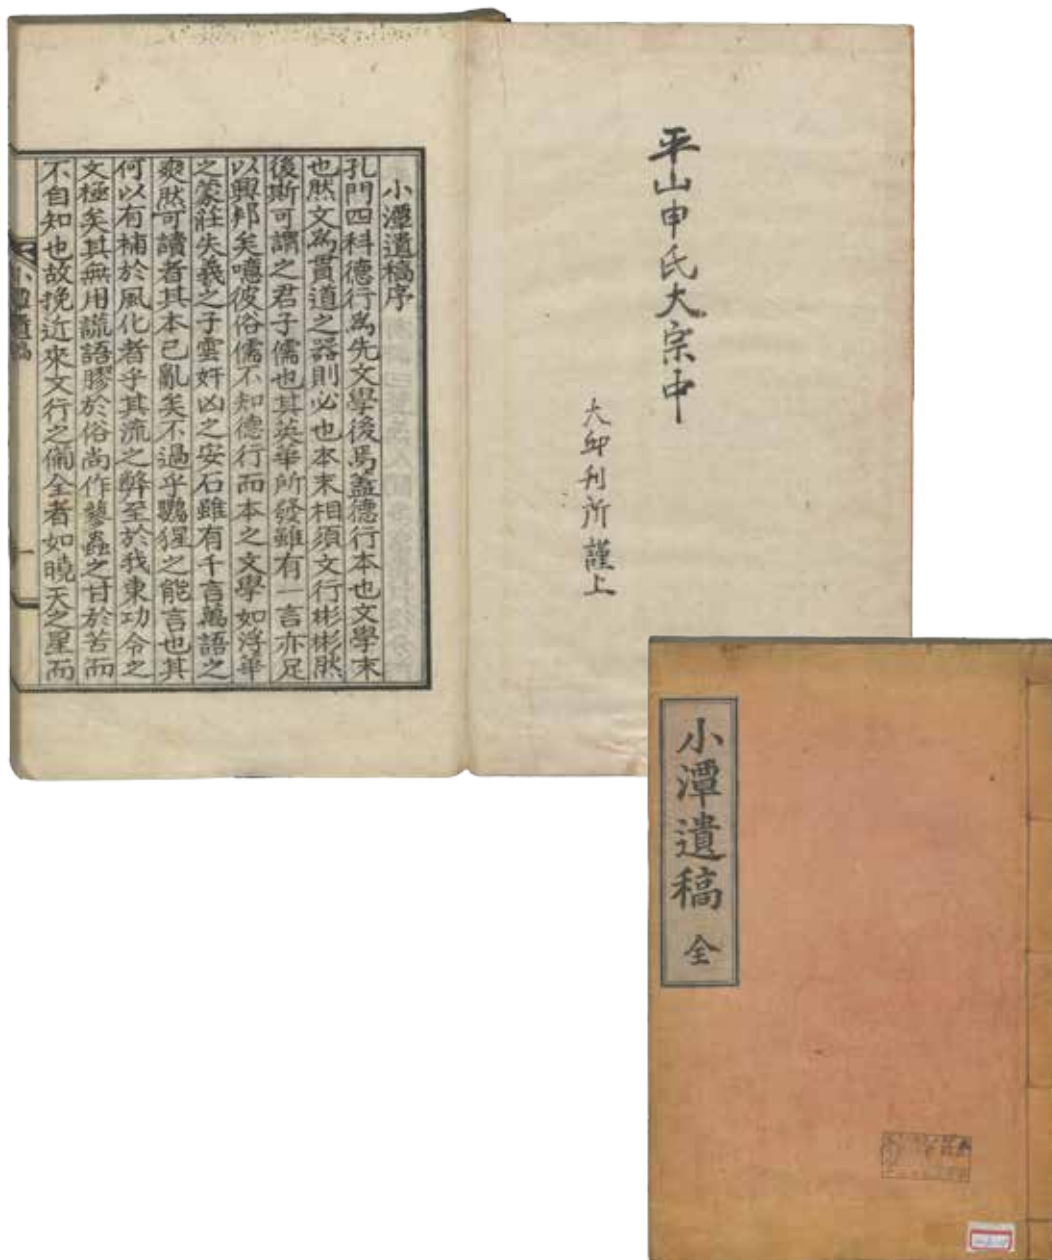 平山申氏大宗中
大邱刊所謹上
小潭遺稿序
孔門四科德行爲先文學後焉蓋德行本也文學末
也然文爲貫道之器則必也本末相須文行彬彬然
後斯可謂之君子儒也其英華所發雖有一言亦足
以興邦矣噫彼俗儒不知德行而本之文學如浮華
之蒙莊失義之子雲奸凶之安石雖有千言萬語之
爽然可讀者其本已亂矣不過乎鸚猩之能言也其
何以有補於風化者乎其流之弊至於我東功令之
文極矣其無用謊語膠於俗尚作蓼蟲之甘於苦而
不自知也故挽近來文行之備全者如曉天之星而
小潭遺稿
一
小潭遺稿 全